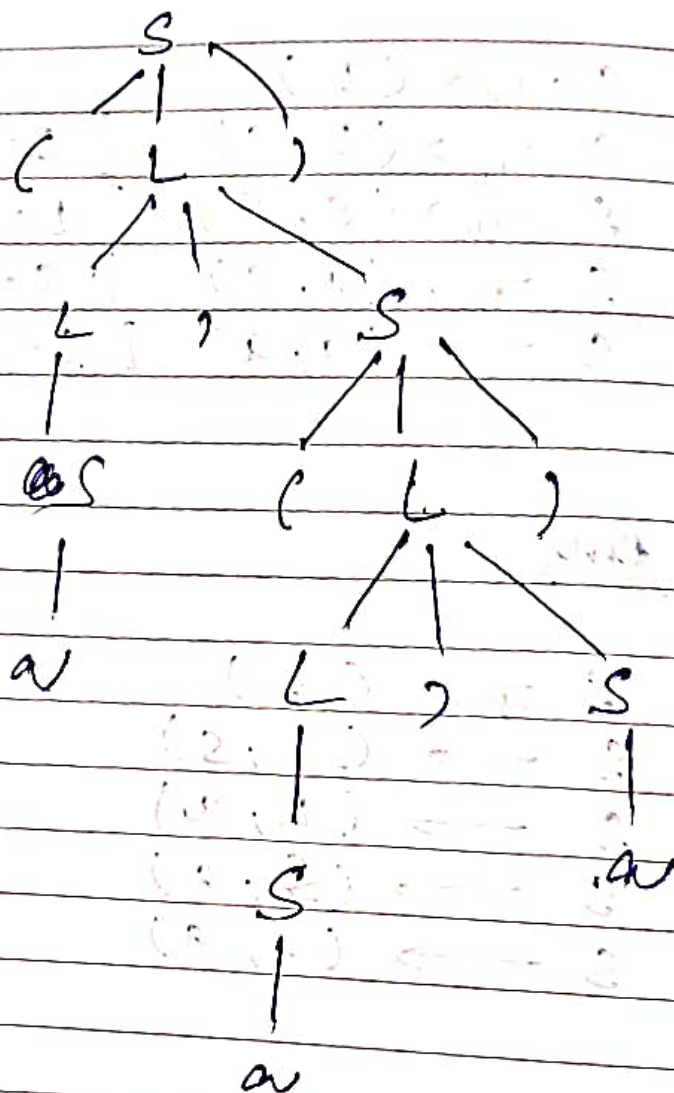 S
( L )
L , S
S ( L )
a L , S
S a
a